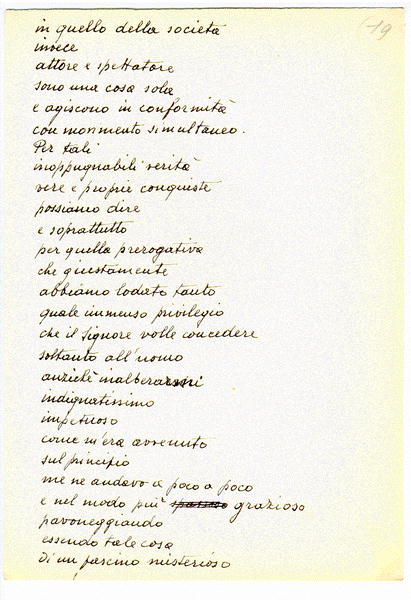 19
in quello della società
invece
attore e spettatore
sono una cosa sola
e agiscono in conformità
con movimento simultaneo.
Per tali
inoppugnabili verità
vere e proprie conquiste
possiamo dire
e soprattutto
per quella prerogativa
che giustamente
abbiamo lodato tanto
quale immenso privilegio
che il Signore volle concedere
soltanto all'uomo
anzichè inalberarmi
indignatissimo
impetuoso
come m'era avvenuto
sul principio
me ne andavo a poco a poco
e nel modo più grazioso
pavoneggiando
essendo tale cosa
di un fascino misterioso